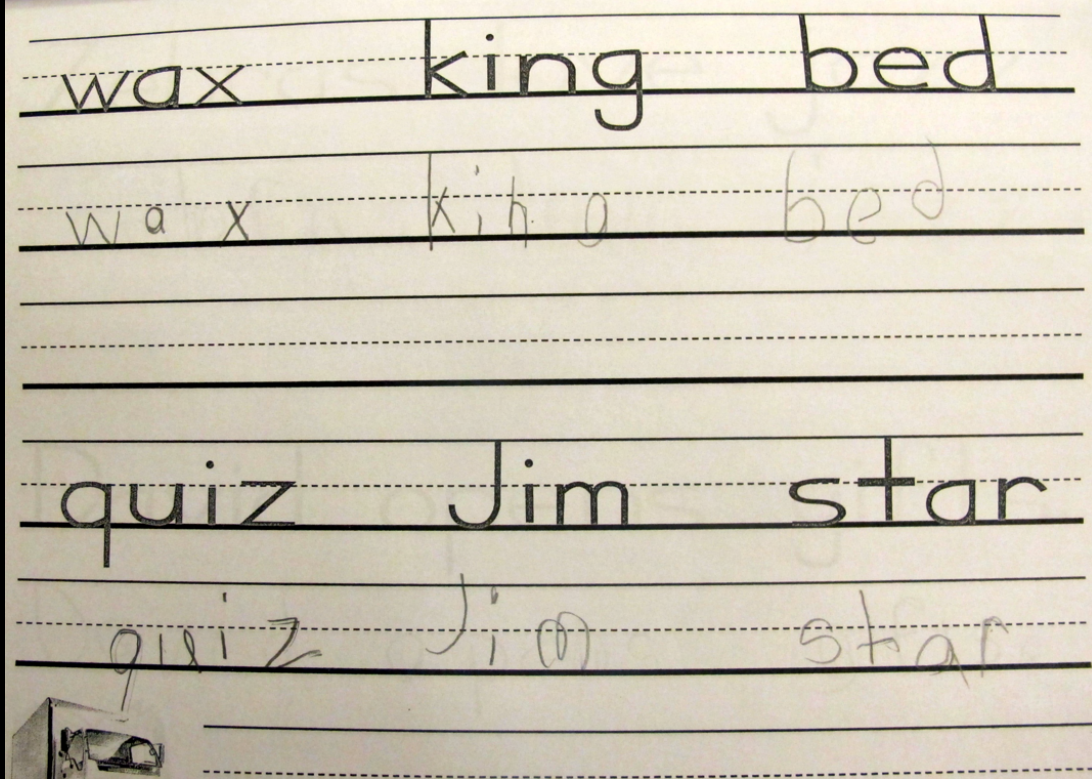 wax king bed
wax king bed
quiz Jim star
quiz Jim star